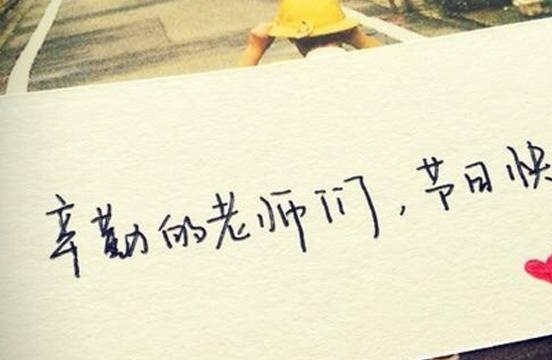 辛勤的老师们，节日快